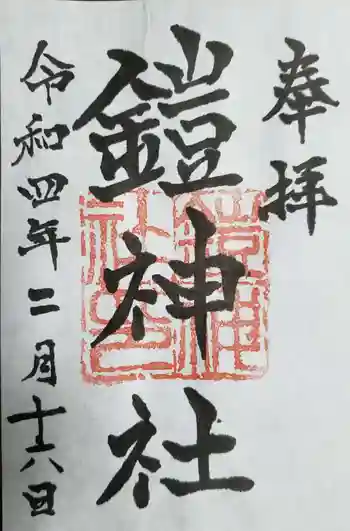 奉拝
鎧神社
令和四年二月十六日
鎧神社印